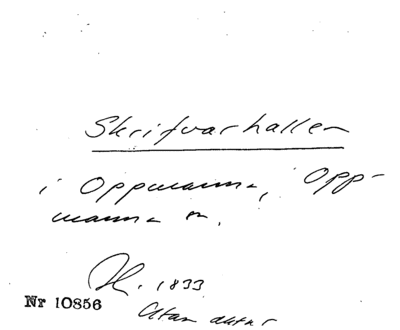 Skrifvarhallen
i Oppmanna, Opp-
manna sn.
K. 1833
Nr 10856
Utan aktnr